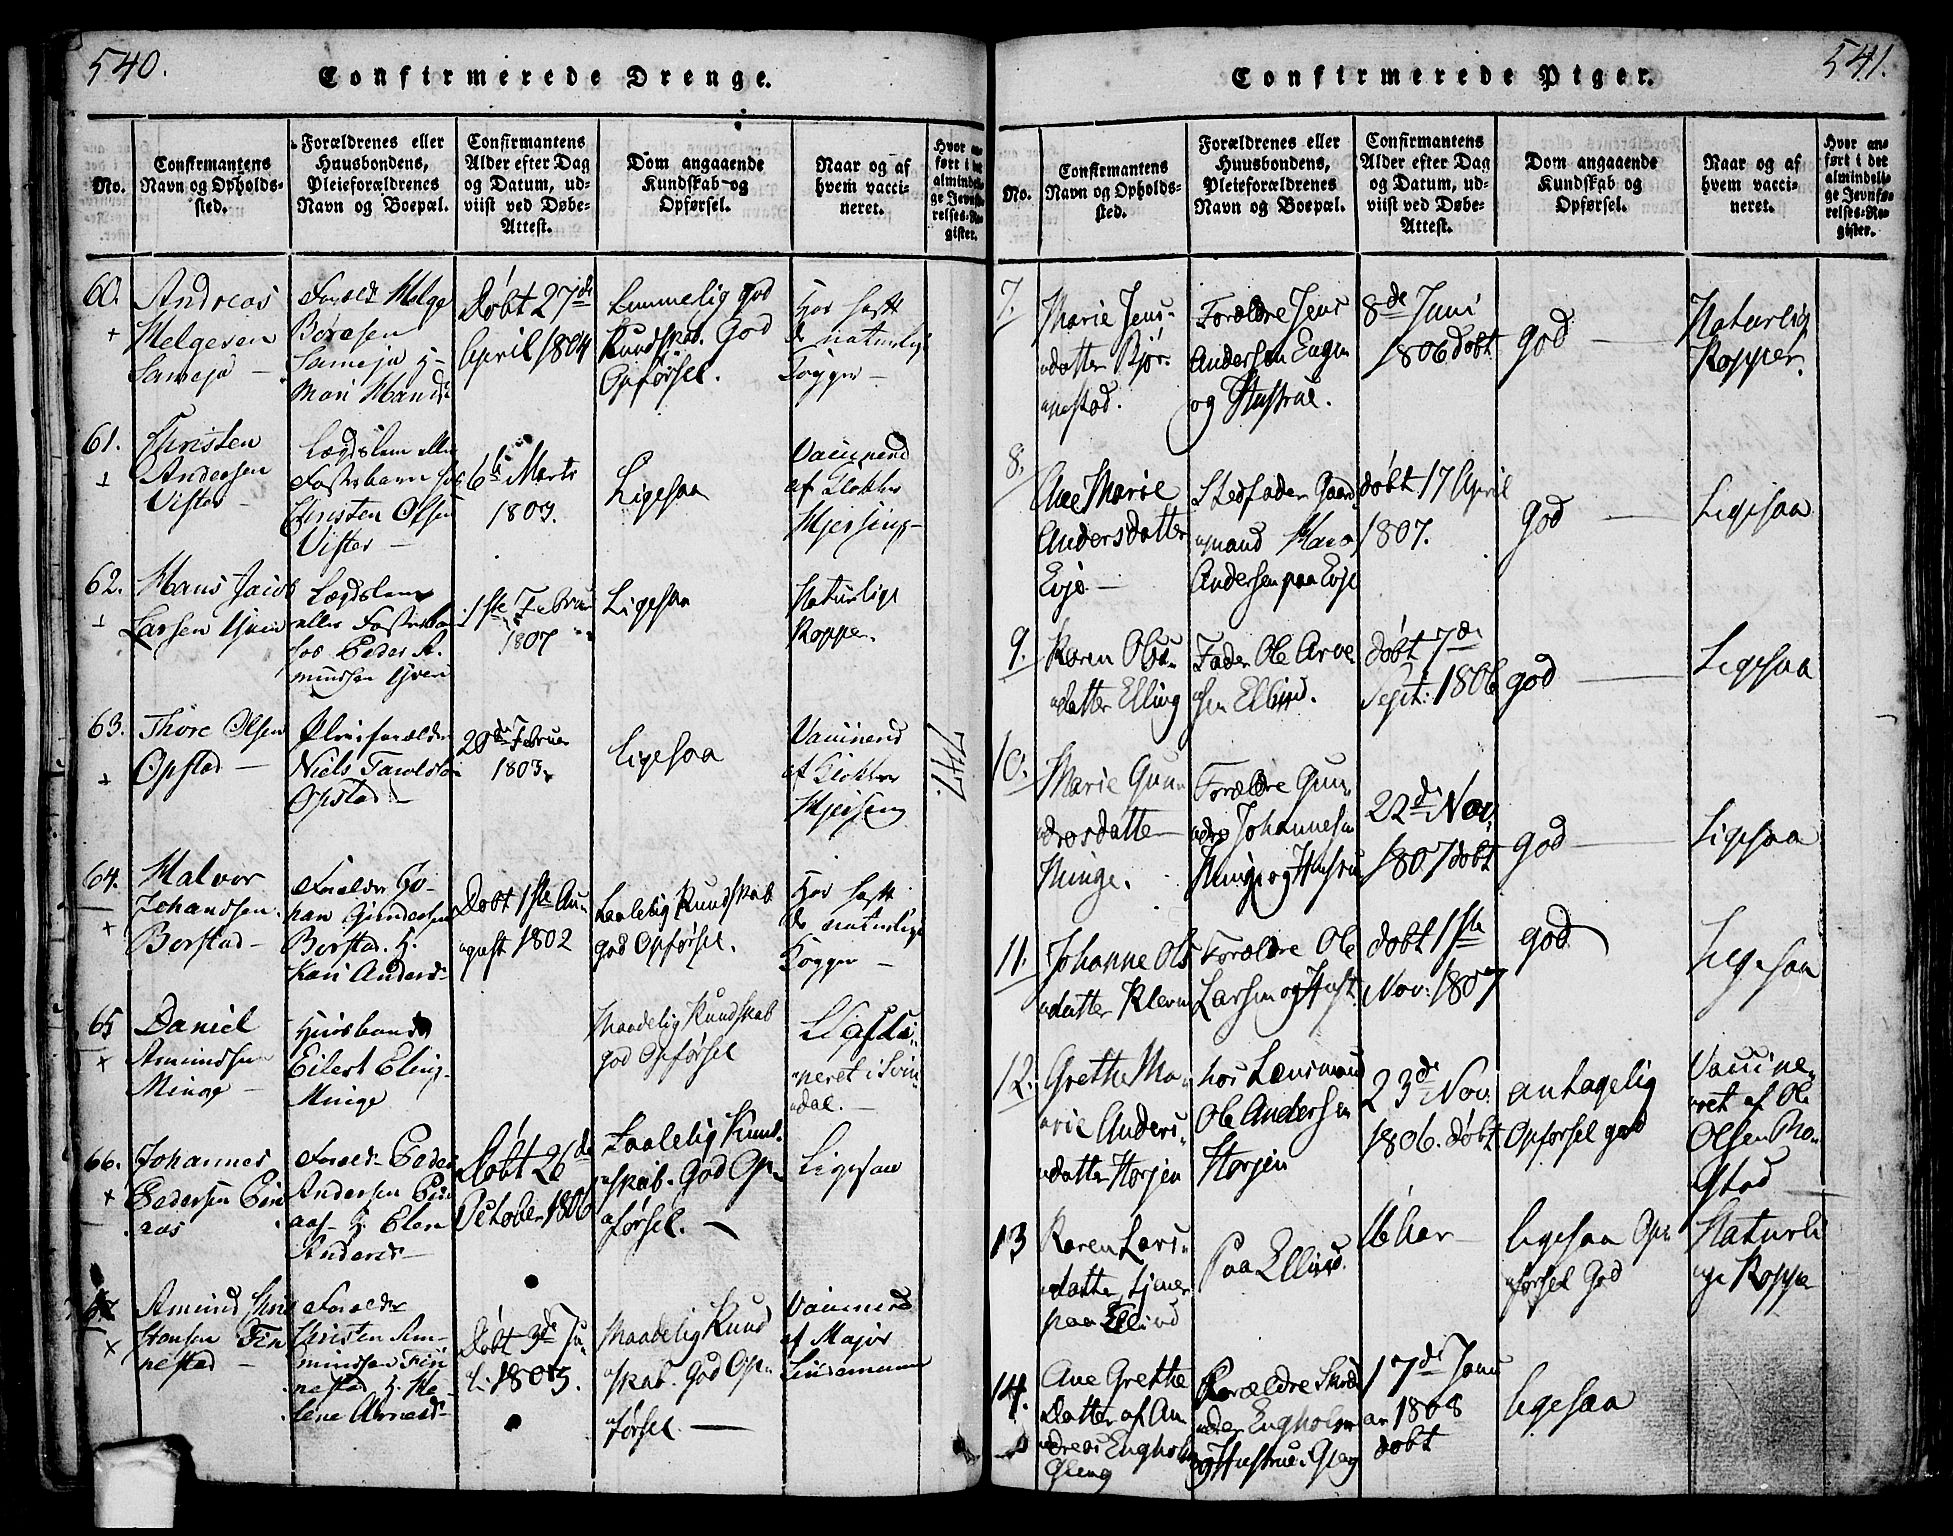 540.
Confirmerede Drenge.
No.
Confirmantens
Navn og Opholds-
sted.
Forældrenes eller
Huusbondens,
Pleieforældrenes
Navn og Boepæl.
Confirmantens
Alder efter Dag
og Datum, ud-
viist ved Døbe-
Attest.
Dom angaaende
Kundskab og
Opførsel.
Naar og af
hvem vacci-
neret.
Hvor an-
ført i det
almindeli-
ge Jevnfø-
relses-Re-
gister.
60.
Andreas
Helgesen
Foræld: Helge
Døbt 27de
April 1804
Temmelig god
Kundskab. God
Opførsel.
Har haft
de naturlig
Kopper
61.
Christen
Andersen
Vister
Lægdslem eller
Fosterbarn hos
Christen Olsen
Vister
6te Marts
1803.
Ligesaa
Vaccinered
af Klokker
62.
Hans Jacob
Larsen
Lægdslem
eller Fosterbarn
hos Peder A-
mundsen
1ste Februar
1807
Ligesaa
Naturlige
Kopper.
63.
Thore Olsen
Opstad
Pleieforældre
Niels
Opstad
Februar
1803
Ligesaa
Vaccinered
af Klokker
747.
64.
Halvor
Johandsen
Borstad
Forældre Jo-
han Gundersen
Borstad. H.
Kari Anders-
Døbt 1ste Au-
gust 1802
Taalelig Kundskab
god Opførsel.
Har haft
de naturlige
Kopper
65
Daniel
Amundsen
Minge
Huusbond
Eilert Eling-
Minge
Maadelig Kundskab
god Opførsel
neret i Svin-
dal.
66.
Johannes
Pedersen
Foræld- Peder
Andersen
Anders-
Døbt 26de
October 1806
Taalelig Kund-
skab. God Op-
førsel.
Ligesaa
67
Amund Chri
stensen Fin
nestad
Forældre
Christen Am-
mundsen Fin
nestad H. He-
lene Arnesd-
Døbt 3de Ju-
li 1805.
Maadelig Kund
skab. God Op-
førsel.
Vaccinered
af Major
Lindemann
541.
Confirmerede Piger.
No.
Confirmantens
Navn og Opholds-
sted.
Forældrenes eller
Huusbondens,
Pleieforældrenes
Navn og Boepæl.
Confirmantens
Alder efter Dag
og Datum, ud-
viist ved Døbe-
Attest.
Dom angaaende
Kundskab og
Opførsel.
Naar og af
hvem vacci-
neret.
Hvor an-
ført i det
almindeli-
ge Jevnfø-
relses-Re-
gister.
7.
Marie Jens-
datter Bjør-
nestad.
Forældre Jens
Andersen
og Hustrue.
8de Juni
1806 døbt
god
Naturlig
Kopper.
8.
Ane Marie
Andersdatter
Evje
Stedfader Gaard
mand Hans
Andersen paa Evje
døbt 17 April
1807.
god
Ligesaa
9.
Karen Ols-
datter Elling
Fader Ole Arve
sen Ellind.
døbt 7de
Sept: 1806
god
Ligesaa
10.
Marie Gun-
dersdatter
Minge.
Forældre Gun-
der Johannesen
Minge og Hustru
22de Nov.
1807 døbt
god
Ligesaa
11.
Johanne Ols
datter Kleven
Forældre Ole
Larsen og Hust.
døbt 1ste
Nov: 1807
god
Ligesaa
12.
Grethe Ma-
rie Anders-
datter Horjen
hos Lensmand
Ole Andersen
Horjen
23de Nov.
1806. døbt
antagelig
Opførsel god
Vaccine-
ret af Ole
Olsen Bo-
stad
13
Karen Lars-
datter tjener
paa Ellind
Paa Ellind.
16 Aar
ligesaa Op-
førsel God
Naturli
ge Kopper
14.
Ane Grethe
Datter af An
dreas Engholm
Gleng
Forældre
Engholm
og Hustrue. Gleng
17de Janu
ar 1808
døbt
ligesaa